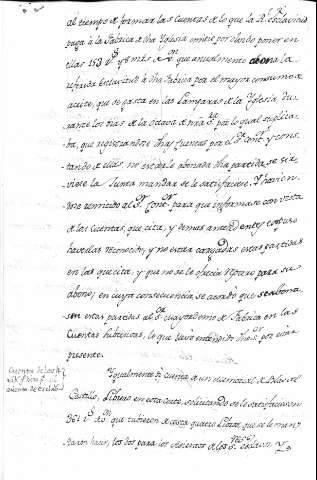 al tiempo de formar las Cuentas de lo que la Rl. Esclavitud
paga à la Fabrica de dha Yglesia omitio por olvido poner en
ellas 153 rs. y 8 mrs. de Vn. que anualmente abona la
referida Esclavitud à dha Fabrica por el mayor consumo de
aceite, que se gasta en las Lamparas de la Yglesia, du-
rante los dias de la Octava de nra. Sra. por lo qual suplica-
ba, que registrandose dhas Cuentas por el Sr. Contr. y cons-
tando de ellas, no estarle abonada dha partida, se sir-
viese la Junta mandar se le satisfaciese. Y havien-
dose remitido al Sr. Contr. para que informase con vista
de las Cuentas, que cita, y demas antecedentes, expuso
haverlas reconocido, y no estar cargadas estas partidas
en las que cita, y que no se le ofrecia reparo para su
abono; en cuya consequencia se acordò que se abona-
sen estas partidas al Sr. Mayordomo de Fabrica en las
Cuentas sucesivas, lo que tuvo entendido dho Sr. por estar
presente.
Cuenta de los 4
Ygualmente dì cuenta de un memorial de Blas del
Castillo, Librero en esta Corte, solicitando se le satisfaciesen
361 rs. de Vn. que tubieron de costa quatro Libros, que se le man-
daron hacer, los dos para los Asientos de los Sres. Esclavos, y